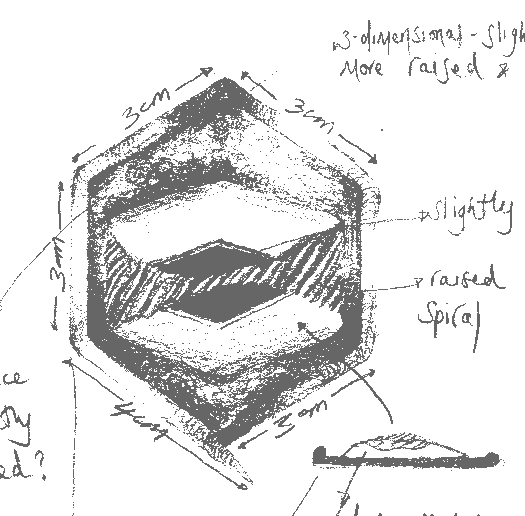 3-dimensional - sligh
More raised &
3cm
3cm
slightly
3cm
raised
Spiral
4cm
3cm
ed?